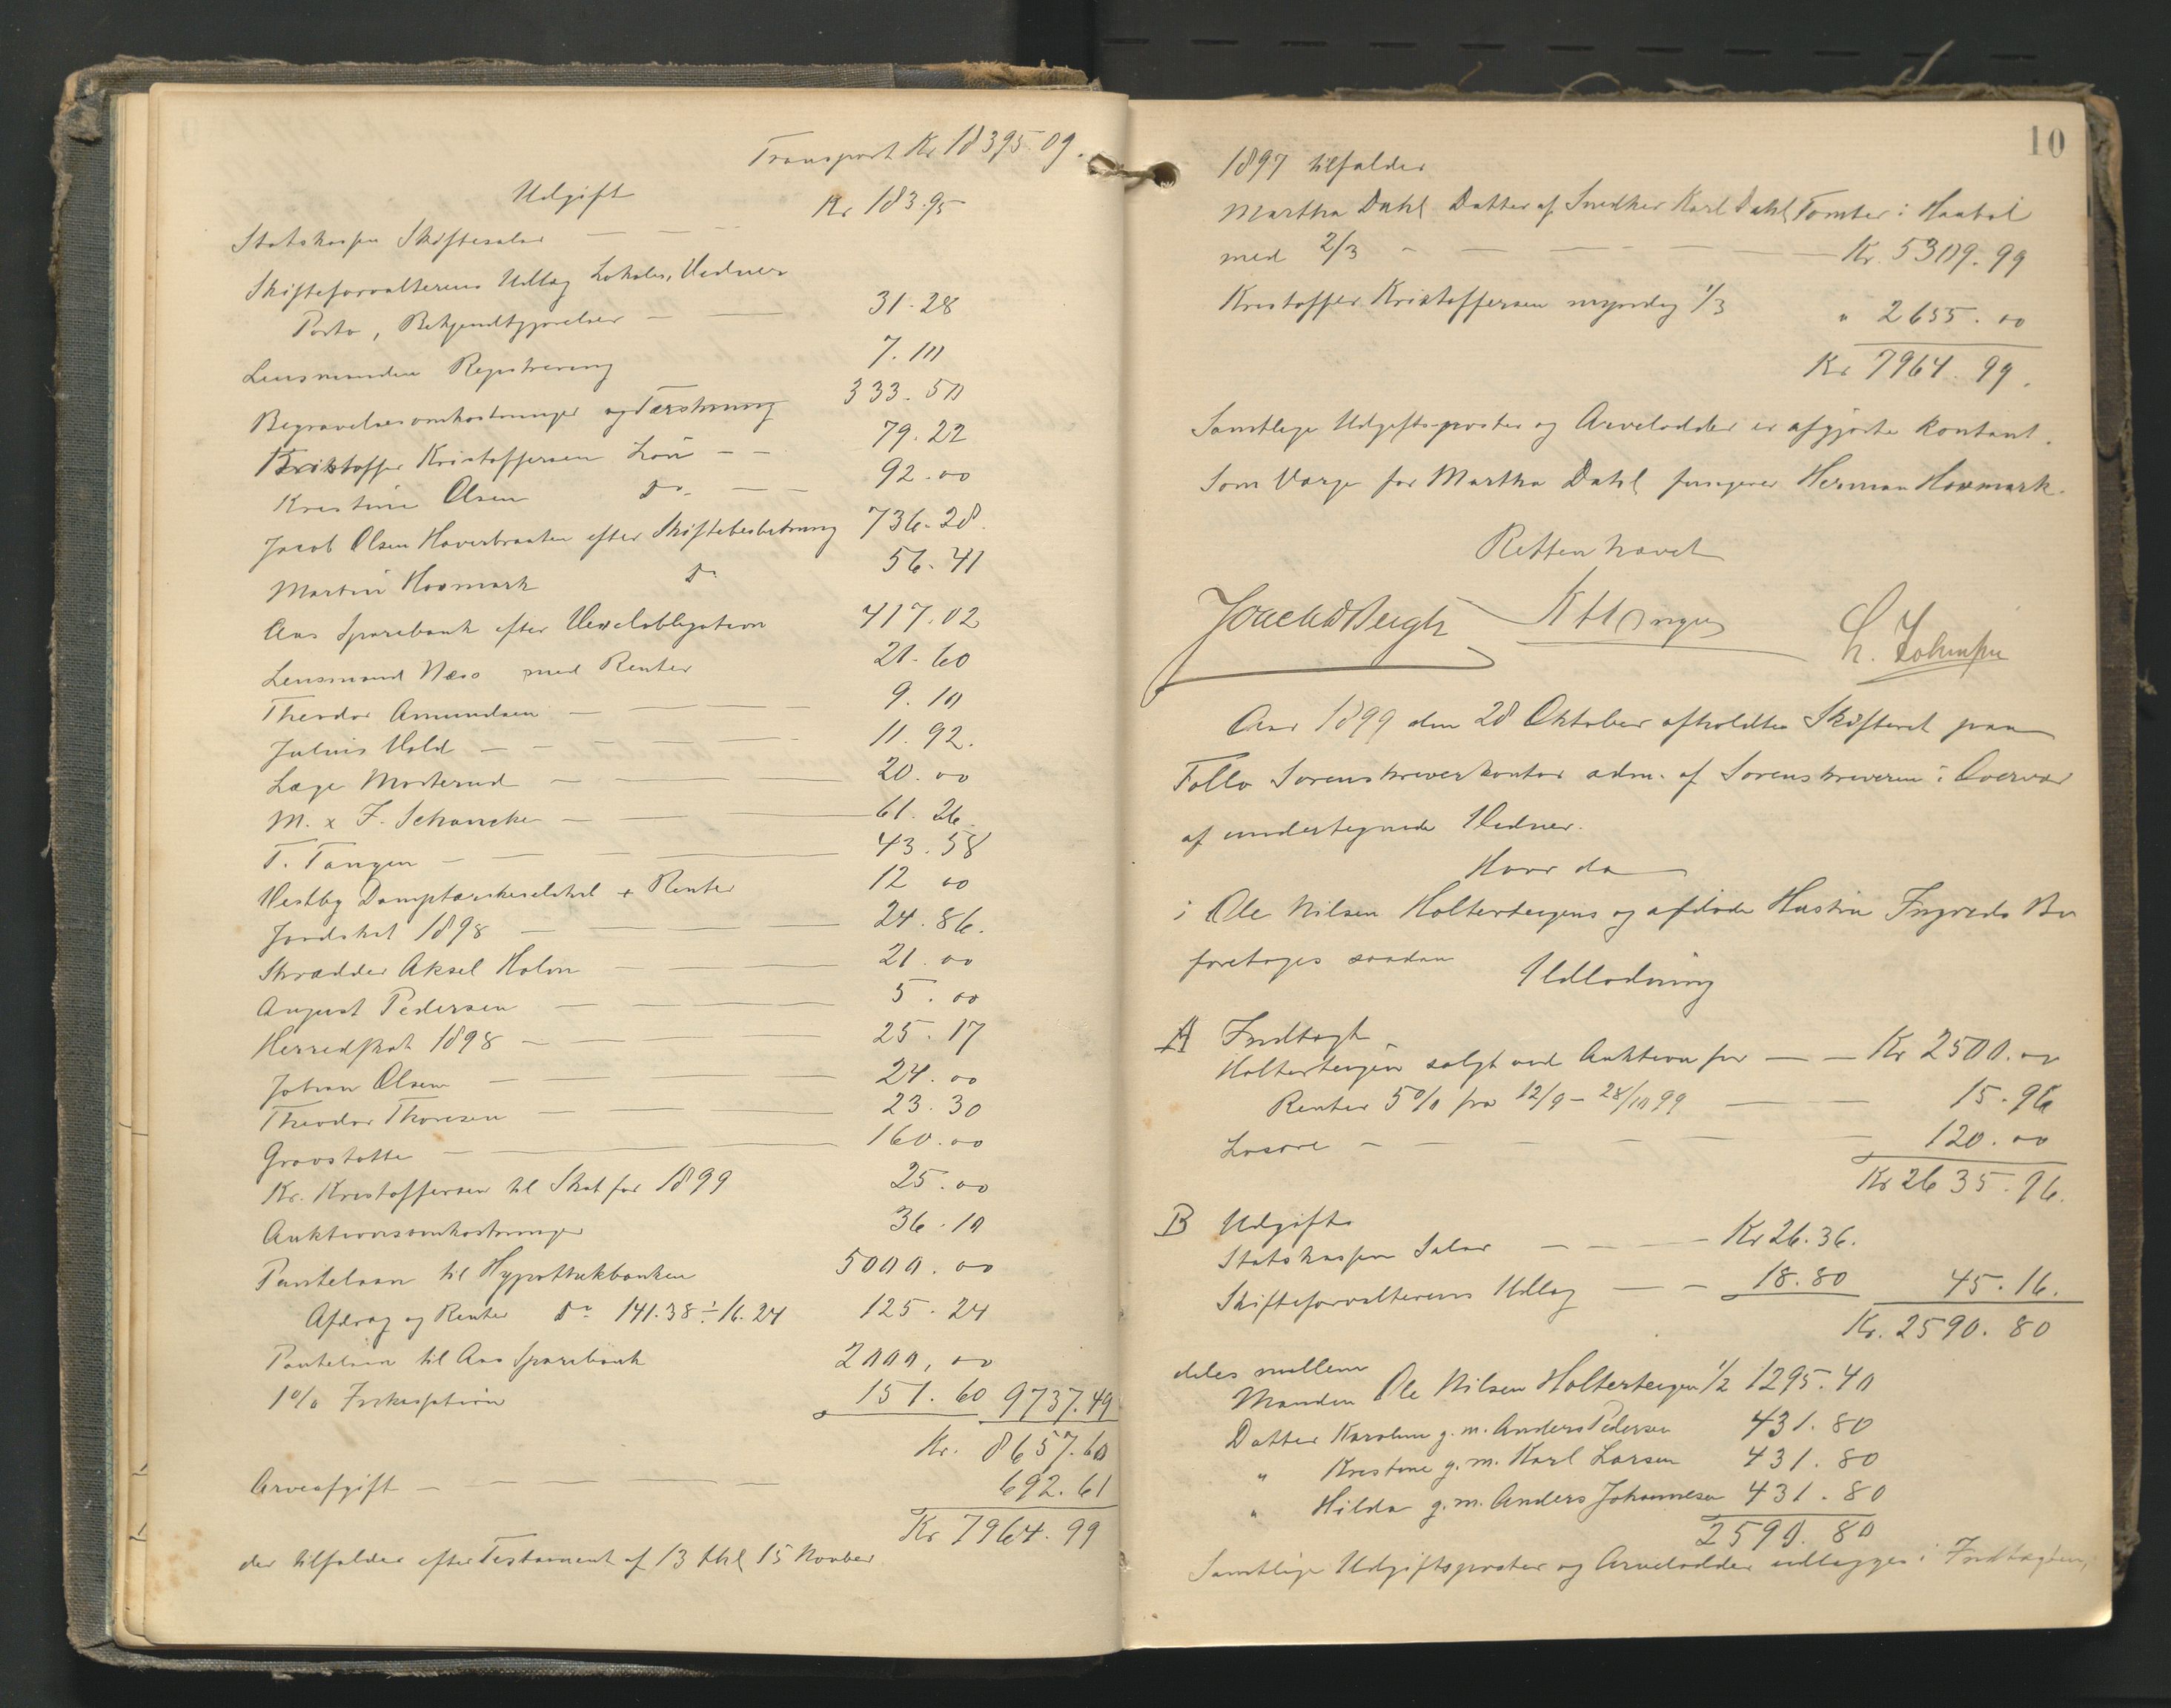 Transport Kr 18395.09.
Udgift
Statskassen Skiftesalær — — — Kr 183.95
Skifteforvalterens Udlæg Lokaler, Vidner
Porto, Bekjendtgjørelser — — 31.28
Lensmanden Registrering 7.10
Begravelsesomkostninger og Tærskning 333.50
Kristoffer Kristoffersen Løn — — 79.22
Kristine Olsen Do. — — 92.00
Jacob Olsen Haverbraaten efter Skiftebeslutning 736.28.
Martin Hovmark Do 56.41
Aas Sparebank efter Vexelobligation 417.02
Lensmand Næss med Renter 21.60
Theodor Amundsen — — — 9.10
Julius Vold — — — — 11.92.
Læge Mosterud — — — 20.00
M. x J. Schancke — — — 61.26
T. Tangen — — — 43.58
Vestby Damptærskeselskab + Renter 12 00
Jordskat 1898 — — — 24.86.
Skrædder Aksel Holm — — — 21.00
August Pedersen — — — 5.00
Herredskat 1898 — — — 25.17
Johan Olsen — — — 24.00
Theodor Thoresen — — — 23.30
Gravstøtte — — — 160.00
Kr. Kristoffersen til Skat for 1899 25.00
Auktionsomkostninger 36.10
Pantelaan til Hypothekbanken 5000.00
Afdrag og Renter Do 141.38 ÷ 16.24 125.24
Pantelaan til Aas Sparebank 2000,00
1% Inkassation 151.60 9737.49
Kr. 8657.60
Arveafgift — — — — 692.61
Kr 7964.99
der tilfalder efter Testament af 13 thl 15 Novber
10
1897 tilfalder
Martha Dahl Datter af Snedker Karl Dahl Tomter i Haabøl
med 2/3 — — — — Kr. 5309.99
Kristoffer Kristoffersen myndig 1/3 " 2655.00
Kr 7964.99.
Samtlige Udgiftsposter og Arvelodder er afgjorte kontant.
Som Værge for Martha Dahl fungerer Herman Hovmark.
Retten hævet
L. Johnsen
Aar 1899 den 28 Oktober afholdtes Skifteret paa
Follo Sorenskriverkontor adm. af Sorenskriveren i Overvær
af undertegnede Vidner.
Hvor da
i Ole Nilsen Holterteigens og afdøde Hustru Ingrids Bo
foretoges saadan
Udlodning
A Indtægt
Holterteigen solgt ved Auktion for — — Kr 2500.00
Renter 5% fra 12/9 – 28/10 99 — — 15.96
Løsøre — — — — 120.00
Kr 2635.96.
B Udgift
Statskassen Salær — — — Kr 26.36.
Skifteforvalterens Udlæg — — 18.80 45.16.
Kr. 2590.80
deles mellem
Manden Ole Nilsen Holterteigen 1/2 1295.40
Datter Karoline g. m. Anders Pedersen 431.80
" Kristine g. m. Karl Larsen 431.80
" Hilda g. m. Anders Johannesen 431.80
2590.80
Samtlige Udgiftsposter og Arvelodder udlægges i Indtægten,